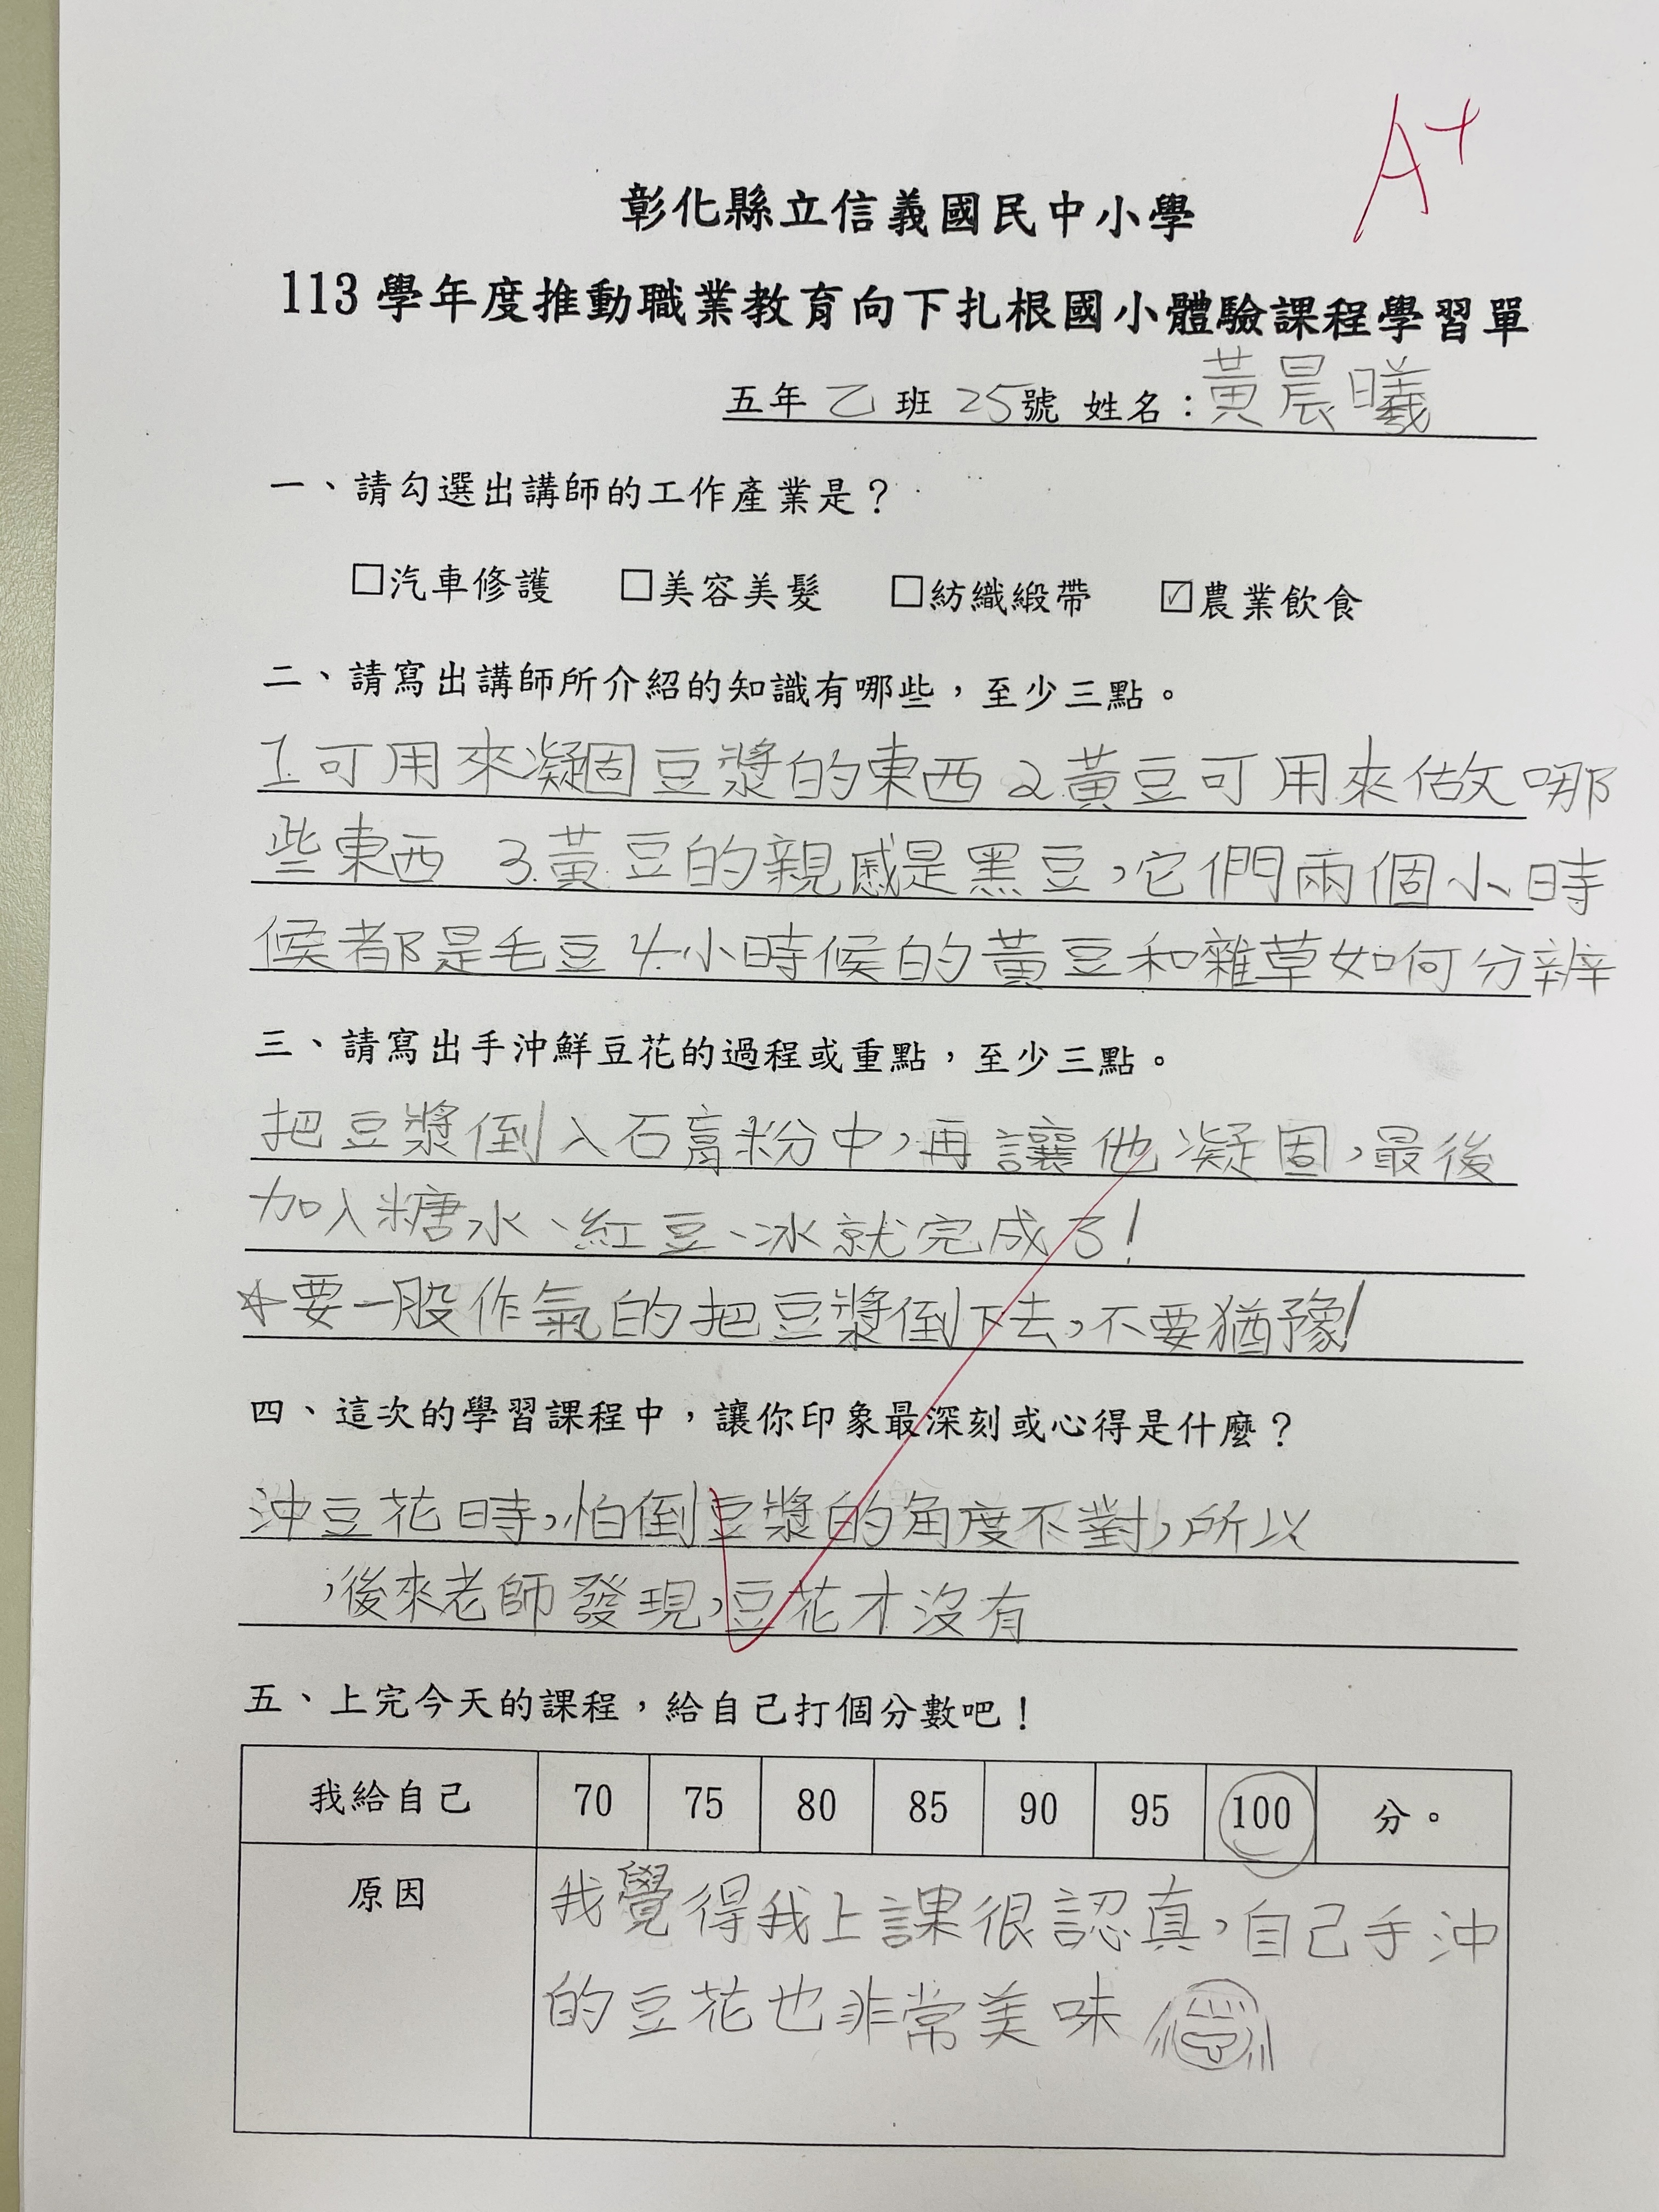 A+
彰化縣立信義國民中小學
113學年度推動職業教育向下扎根國小體驗課程學習單
五年 乙 班 25號 姓名：黃晨曦
一、請勾選出講師的工作產業是？
□汽車修護 □美容美髮 □紡織緞帶 ☑農業飲食
二、請寫出講師所介紹的知識有哪些，至少三點。
1.可用來凝固豆漿的東西 2.黃豆可用來做哪
些東西 3.黃豆的親戚是黑豆，它們兩個小時
候都是毛豆 4.小時候的黃豆和雜草如何分辨
三、請寫出手沖鮮豆花的過程或重點，至少三點。
把豆漿倒入石膏粉中，再讓他凝固，最後
加入糖水、紅豆、冰就完成了！
☆要一股作氣的把豆漿倒下去，不要猶豫！
四、這次的學習課程中，讓你印象最深刻或心得是什麼？
沖豆花時，怕倒豆漿的角度不對，所以
，後來老師發現，豆花才沒有
五、上完今天的課程，給自己打個分數吧！
我給自己 70 75 80 85 90 95 100 分。
原因 我覺得我上課很認真，自己手沖
的豆花也非常美味